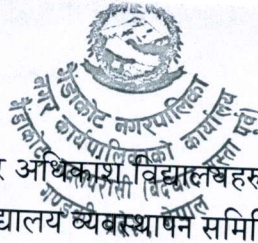 गैंडाकोट नगरपालिका
नगर कार्यपालिकाको कार्यालय
गैंडाकोट
नेपाल
र अधिकांश विद्यालयहरु
द्यालय व्यवस्थापन समिति